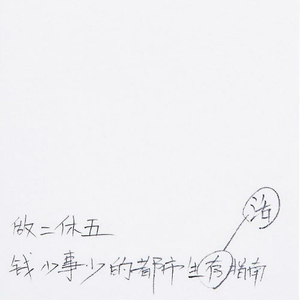 做二休五
活
钱少事少的都市生存指南